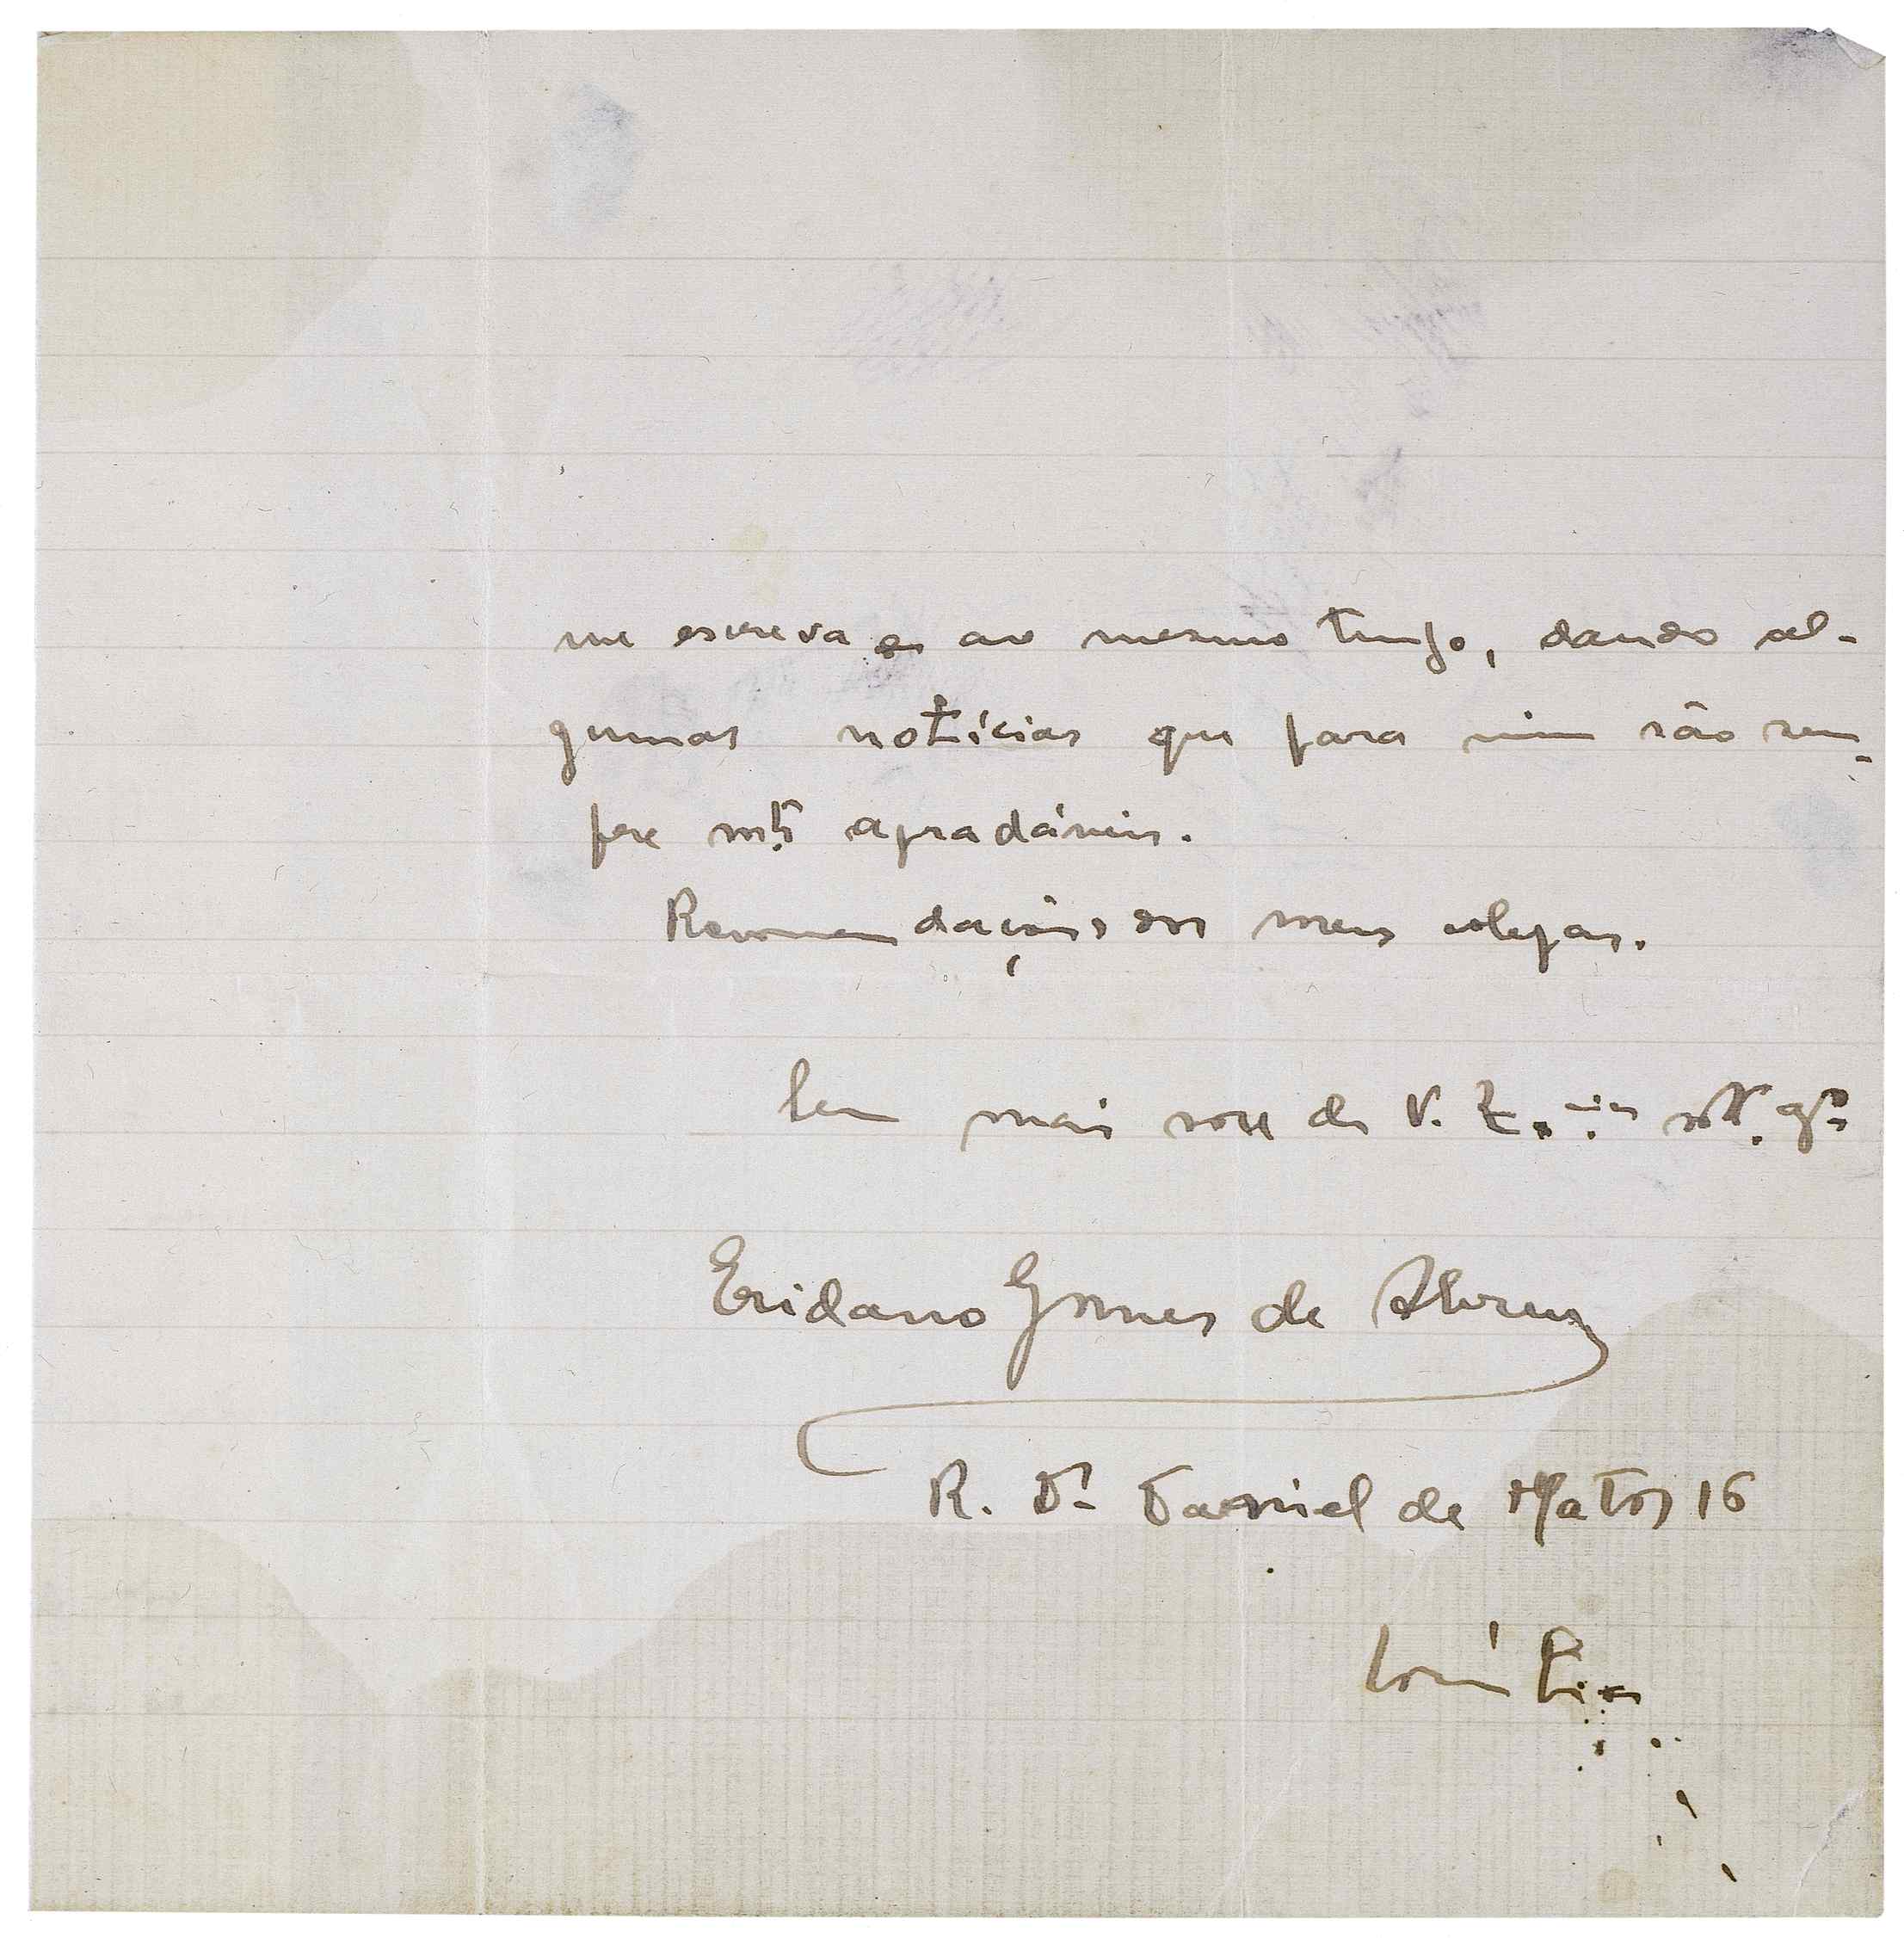 me escreva ao mesmo tempo, dando al-
gumas notícias que para mim são sem-
pre mto agradáveis.
Recomendações dos meus colegas.
Sem mais sou de V. Ex.cia
Eridano Gomes de Abreu
R. Dr. Daniel de Matos 16
Coímbra